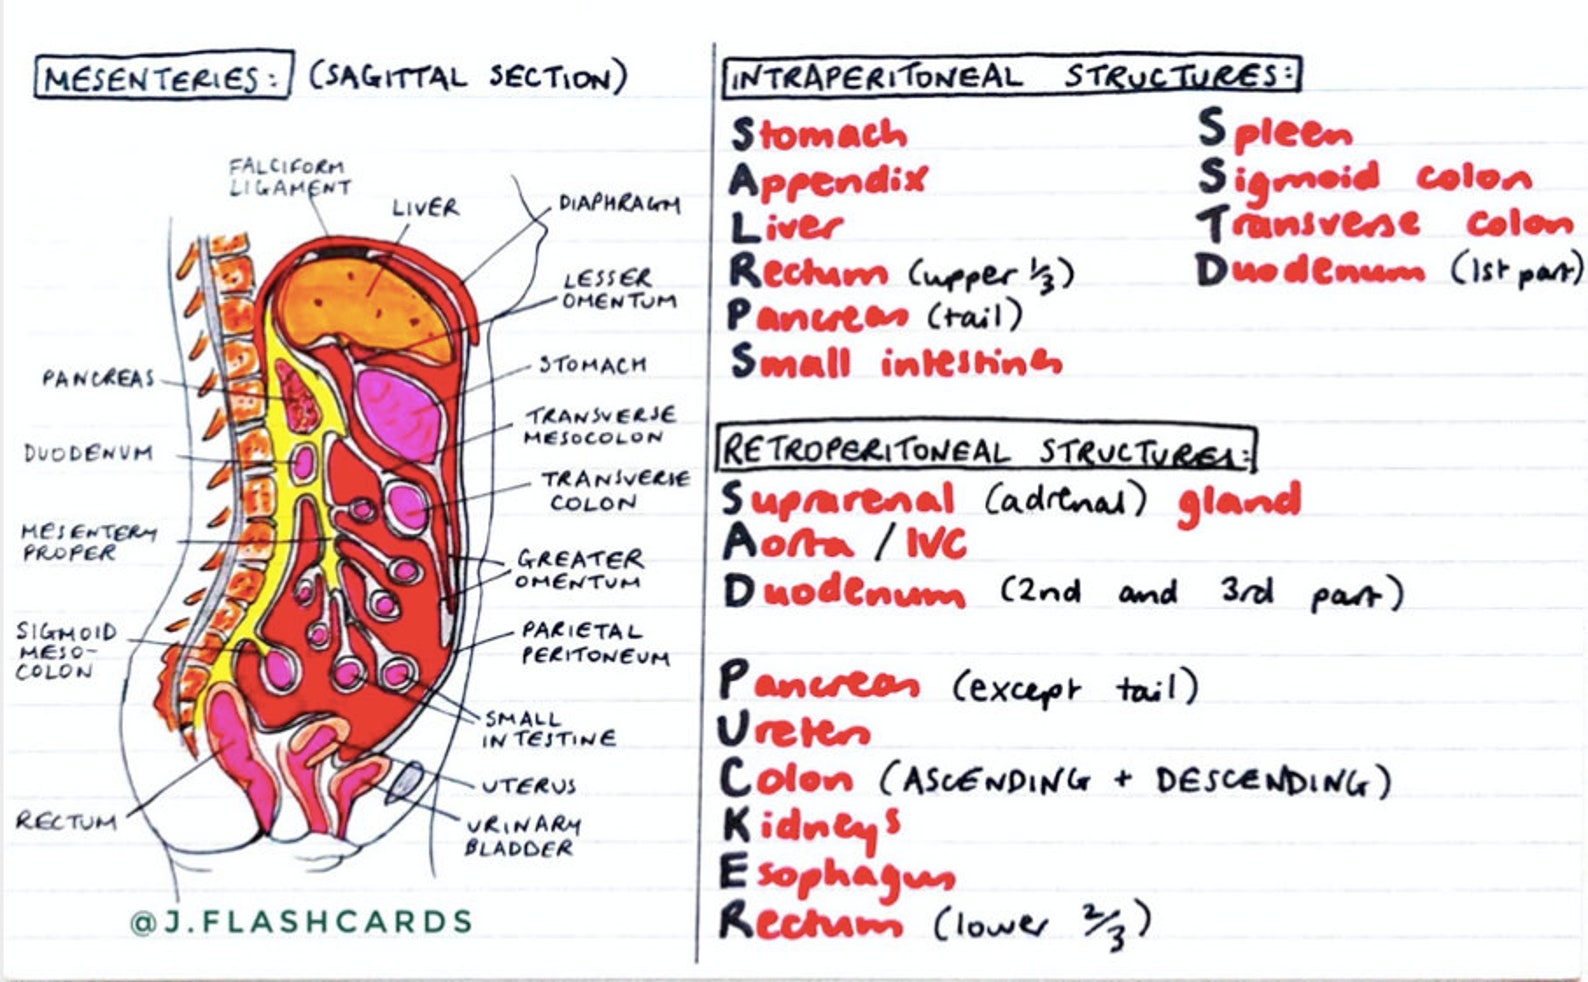 MESENTERIES: (SAGITTAL SECTION)
FALCIFORM
LIGAMENT
LIVER
DIAPHRAGM
LESSER
OMENTUM
STOMACH
PANCREAS
TRANSVERSE
MESOCOLON
DUODENUM
TRANSVERSE
COLON
MESENTERY
PROPER
GREATER
OMENTUM
SIGMOID
MESO-
COLON
PARIETAL
PERITONEUM
SMALL
INTESTINE
UTERUS
RECTUM
URINARY
BLADDER
@J.FLASHCARDS
INTRAPERITONEAL STRUCTURES:
Stomach
Appendix
Liver
Rectum (upper 1/3)
Pancreas (tail)
Small intestines
Spleen
Sigmoid colon
Transverse colon
Duodenum (1st part)
RETROPERITONEAL STRUCTURES:
Suprarenal (adrenal) gland
Aorta / IVC
Duodenum (2nd and 3rd part)
Pancreas (except tail)
Ureters
Colon (ASCENDING + DESCENDING)
Kidneys
Esophagus
Rectum (lower 2/3)